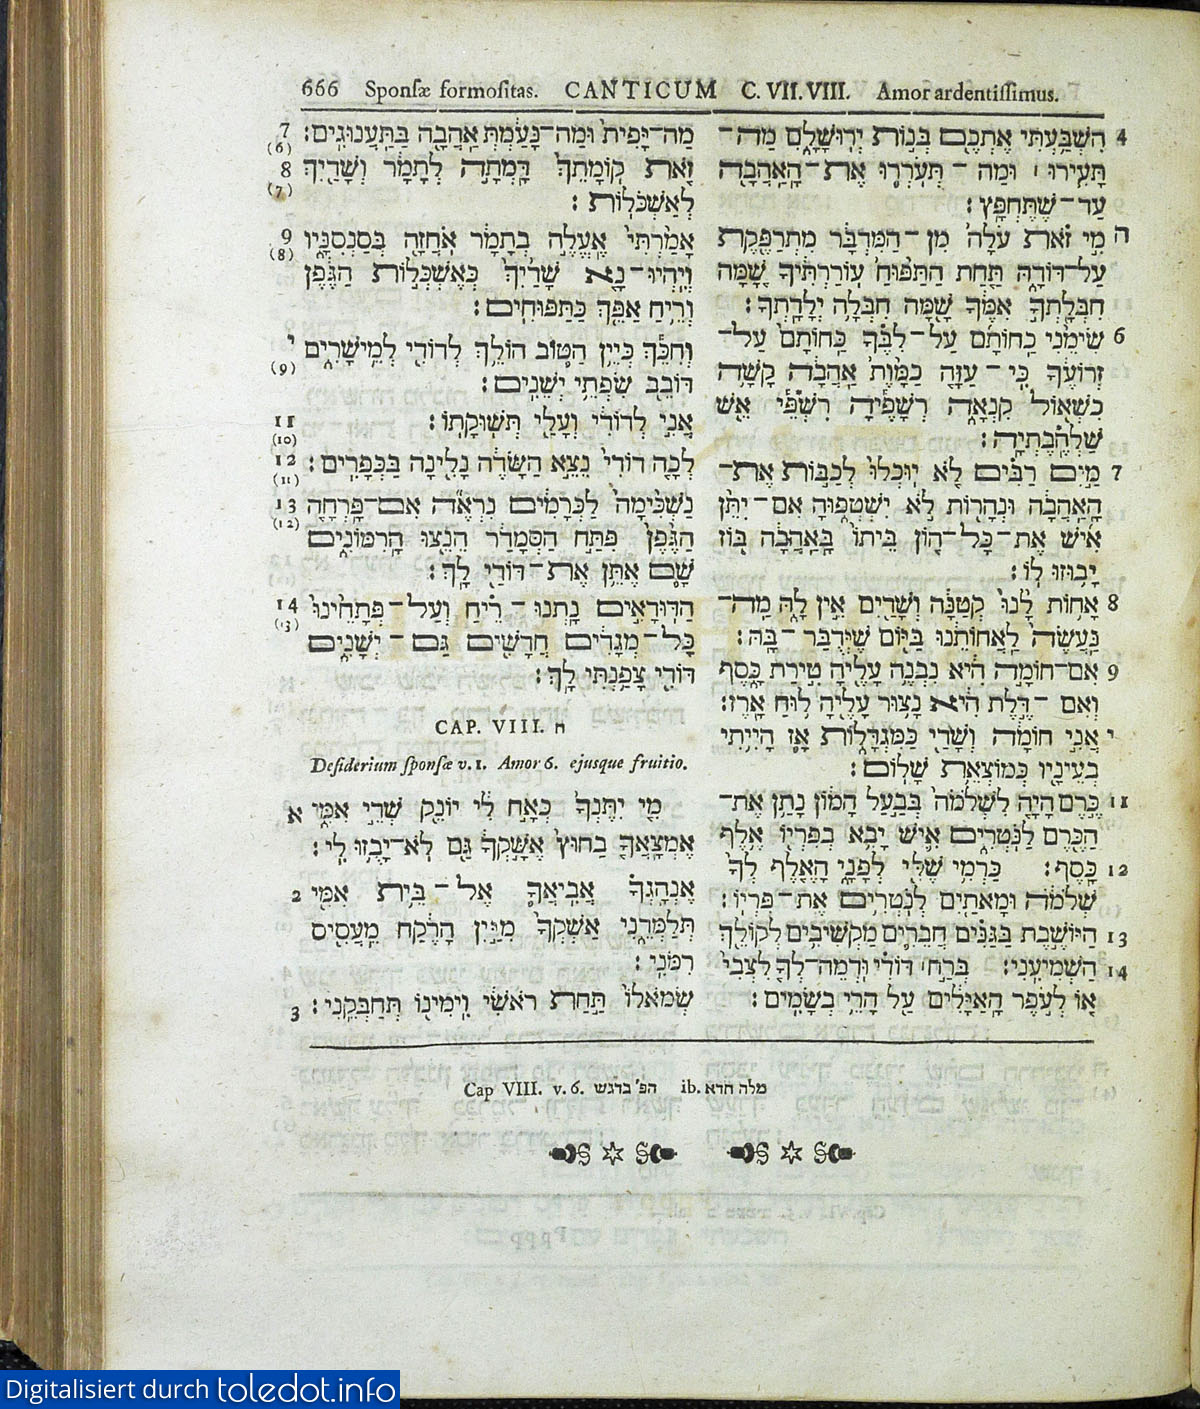 666 Sponsæ formositas. CANTICUM C. VII. VIII. Amor ardentissimus.
7 (6) מַה־יָּפִית וּמַה־נָּעַמְתְּ אַהֲבָה בַּתַּעֲנוּגִים׃
8 (7) זֹאת קוֹמָתֵךְ דָּמְתָה לְתָמָר וְשָׁדַיִךְ
לְאַשְׁכֹּלוֹת׃
9 (8) אָמַרְתִּי אֶעֱלֶה בְתָמָר אֹחֲזָה בְּסַנְסִנָּיו
וְיִהְיוּ־נָא שָׁדַיִךְ כְּאֶשְׁכְּלוֹת הַגֶּפֶן
וְרֵיחַ אַפֵּךְ כַּתַּפּוּחִים׃
י (9) וְחִכֵּךְ כְּיֵין הַטּוֹב הוֹלֵךְ לְדוֹדִי לְמֵישָׁרִים
דּוֹבֵב שִׂפְתֵי יְשֵׁנִים׃
11 (10) אֲנִי לְדוֹדִי וְעָלַי תְּשׁוּקָתוֹ׃
12 (11) לְכָה דוֹדִי נֵצֵא הַשָּׂדֶה נָלִינָה בַּכְּפָרִים׃
13 (12) נַשְׁכִּימָה לַכְּרָמִים נִרְאֶה אִם־פָּרְחָה
הַגֶּפֶן פִּתַּח הַסְּמָדַר הֵנֵצוּ הָרִמּוֹנִים
שָׁם אֶתֵּן אֶת־דּוֹדַי לָךְ׃
14 (13) הַדּוּדָאִים נָתְנוּ־רֵיחַ וְעַל־פְּתָחֵינוּ
כָּל־מְגָדִים חֲדָשִׁים גַּם־יְשָׁנִים
דּוֹדִי צָפַנְתִּי לָךְ׃
CAP. VIII. ח
Desiderium sponsæ v. 1. Amor 6. ejusque fruitio.
א מִי יִתֶּנְךָ כְּאָח לִי יוֹנֵק שְׁדֵי אִמִּי
אֶמְצָאֲךָ בַחוּץ אֶשָּׁקְךָ גַּם לֹא־יָבֻזוּ לִי׃
2 אֶנְהָגְךָ אֲבִיאֲךָ אֶל־בֵּית אִמִּי
תְּלַמְּדֵנִי אַשְׁקְךָ מִיַּיִן הָרֶקַח מֵעֲסִיס
רִמֹּנִי׃
3 שְׂמֹאלוֹ תַּחַת רֹאשִׁי וִימִינוֹ תְּחַבְּקֵנִי׃
4 הִשְׁבַּעְתִּי אֶתְכֶם בְּנוֹת יְרוּשָׁלִָם מַה־
תָּעִירוּ ׀ וּמַה־תְּעֹרְרוּ אֶת־הָאַהֲבָה
עַד־שֶׁתֶּחְפָּץ׃
ה מִי זֹאת עֹלָה מִן־הַמִּדְבָּר מִתְרַפֶּקֶת
עַל־דּוֹדָהּ תַּחַת הַתַּפּוּחַ עוֹרַרְתִּיךָ שָׁמָּה
חִבְּלָתְךָ אִמֶּךָ שָׁמָּה חִבְּלָה יְלָדָתְךָ׃
6 שִׂימֵנִי כַחוֹתָם עַל־לִבֶּךָ כַּחוֹתָם עַל־
זְרוֹעֶךָ כִּי־עַזָּה כַמָּוֶת אַהֲבָה קָשָׁה
כִשְׁאוֹל קִנְאָה רְשָׁפֶיהָ רִשְׁפֵּי אֵשׁ
שַׁלְהֶבֶתְיָה׃
7 מַיִם רַבִּים לֹא יוּכְלוּ לְכַבּוֹת אֶת־
הָאַהֲבָה וּנְהָרוֹת לֹא יִשְׁטְפוּהָ אִם־יִתֵּן
אִישׁ אֶת־כָּל־הוֹן בֵּיתוֹ בָּאַהֲבָה בּוֹז
יָבוּזוּ לוֹ׃
8 אָחוֹת לָנוּ קְטַנָּה וְשָׁדַיִם אֵין לָהּ מַה־
נַּעֲשֶׂה לַאֲחוֹתֵנוּ בַּיּוֹם שֶׁיְּדֻבַּר־בָּהּ׃
9 אִם־חוֹמָה הִיא נִבְנֶה עָלֶיהָ טִירַת כָּסֶף
וְאִם־דֶּלֶת הִיא נָצוּר עָלֶיהָ לוּחַ אָרֶז׃
י אֲנִי חוֹמָה וְשָׁדַי כַּמִּגְדָּלוֹת אָז הָיִיתִי
בְעֵינָיו כְּמוֹצְאֵת שָׁלוֹם׃
11 כֶּרֶם הָיָה לִשְׁלֹמֹה בְּבַעַל הָמוֹן נָתַן אֶת־
הַכֶּרֶם לַנֹּטְרִים אִישׁ יָבִא בְּפִרְיוֹ אֶלֶף
12 כָּסֶף׃ כַּרְמִי שֶׁלִּי לְפָנָי הָאֶלֶף לְךָ
שְׁלֹמֹה וּמָאתַיִם לְנֹטְרִים אֶת־פִּרְיוֹ׃
13 הַיּוֹשֶׁבֶת בַּגַּנִּים חֲבֵרִים מַקְשִׁיבִים לְקוֹלֵךְ
14 הַשְׁמִיעִנִי׃ בְּרַח ׀ דּוֹדִי וּדְמֵה־לְךָ לִצְבִי
אוֹ לְעֹפֶר הָאַיָּלִים עַל הָרֵי בְשָׂמִים׃
Cap VIII. v. 6. הפ' בדגש ib. מלה חדא
Digitalisiert durch toledot.info